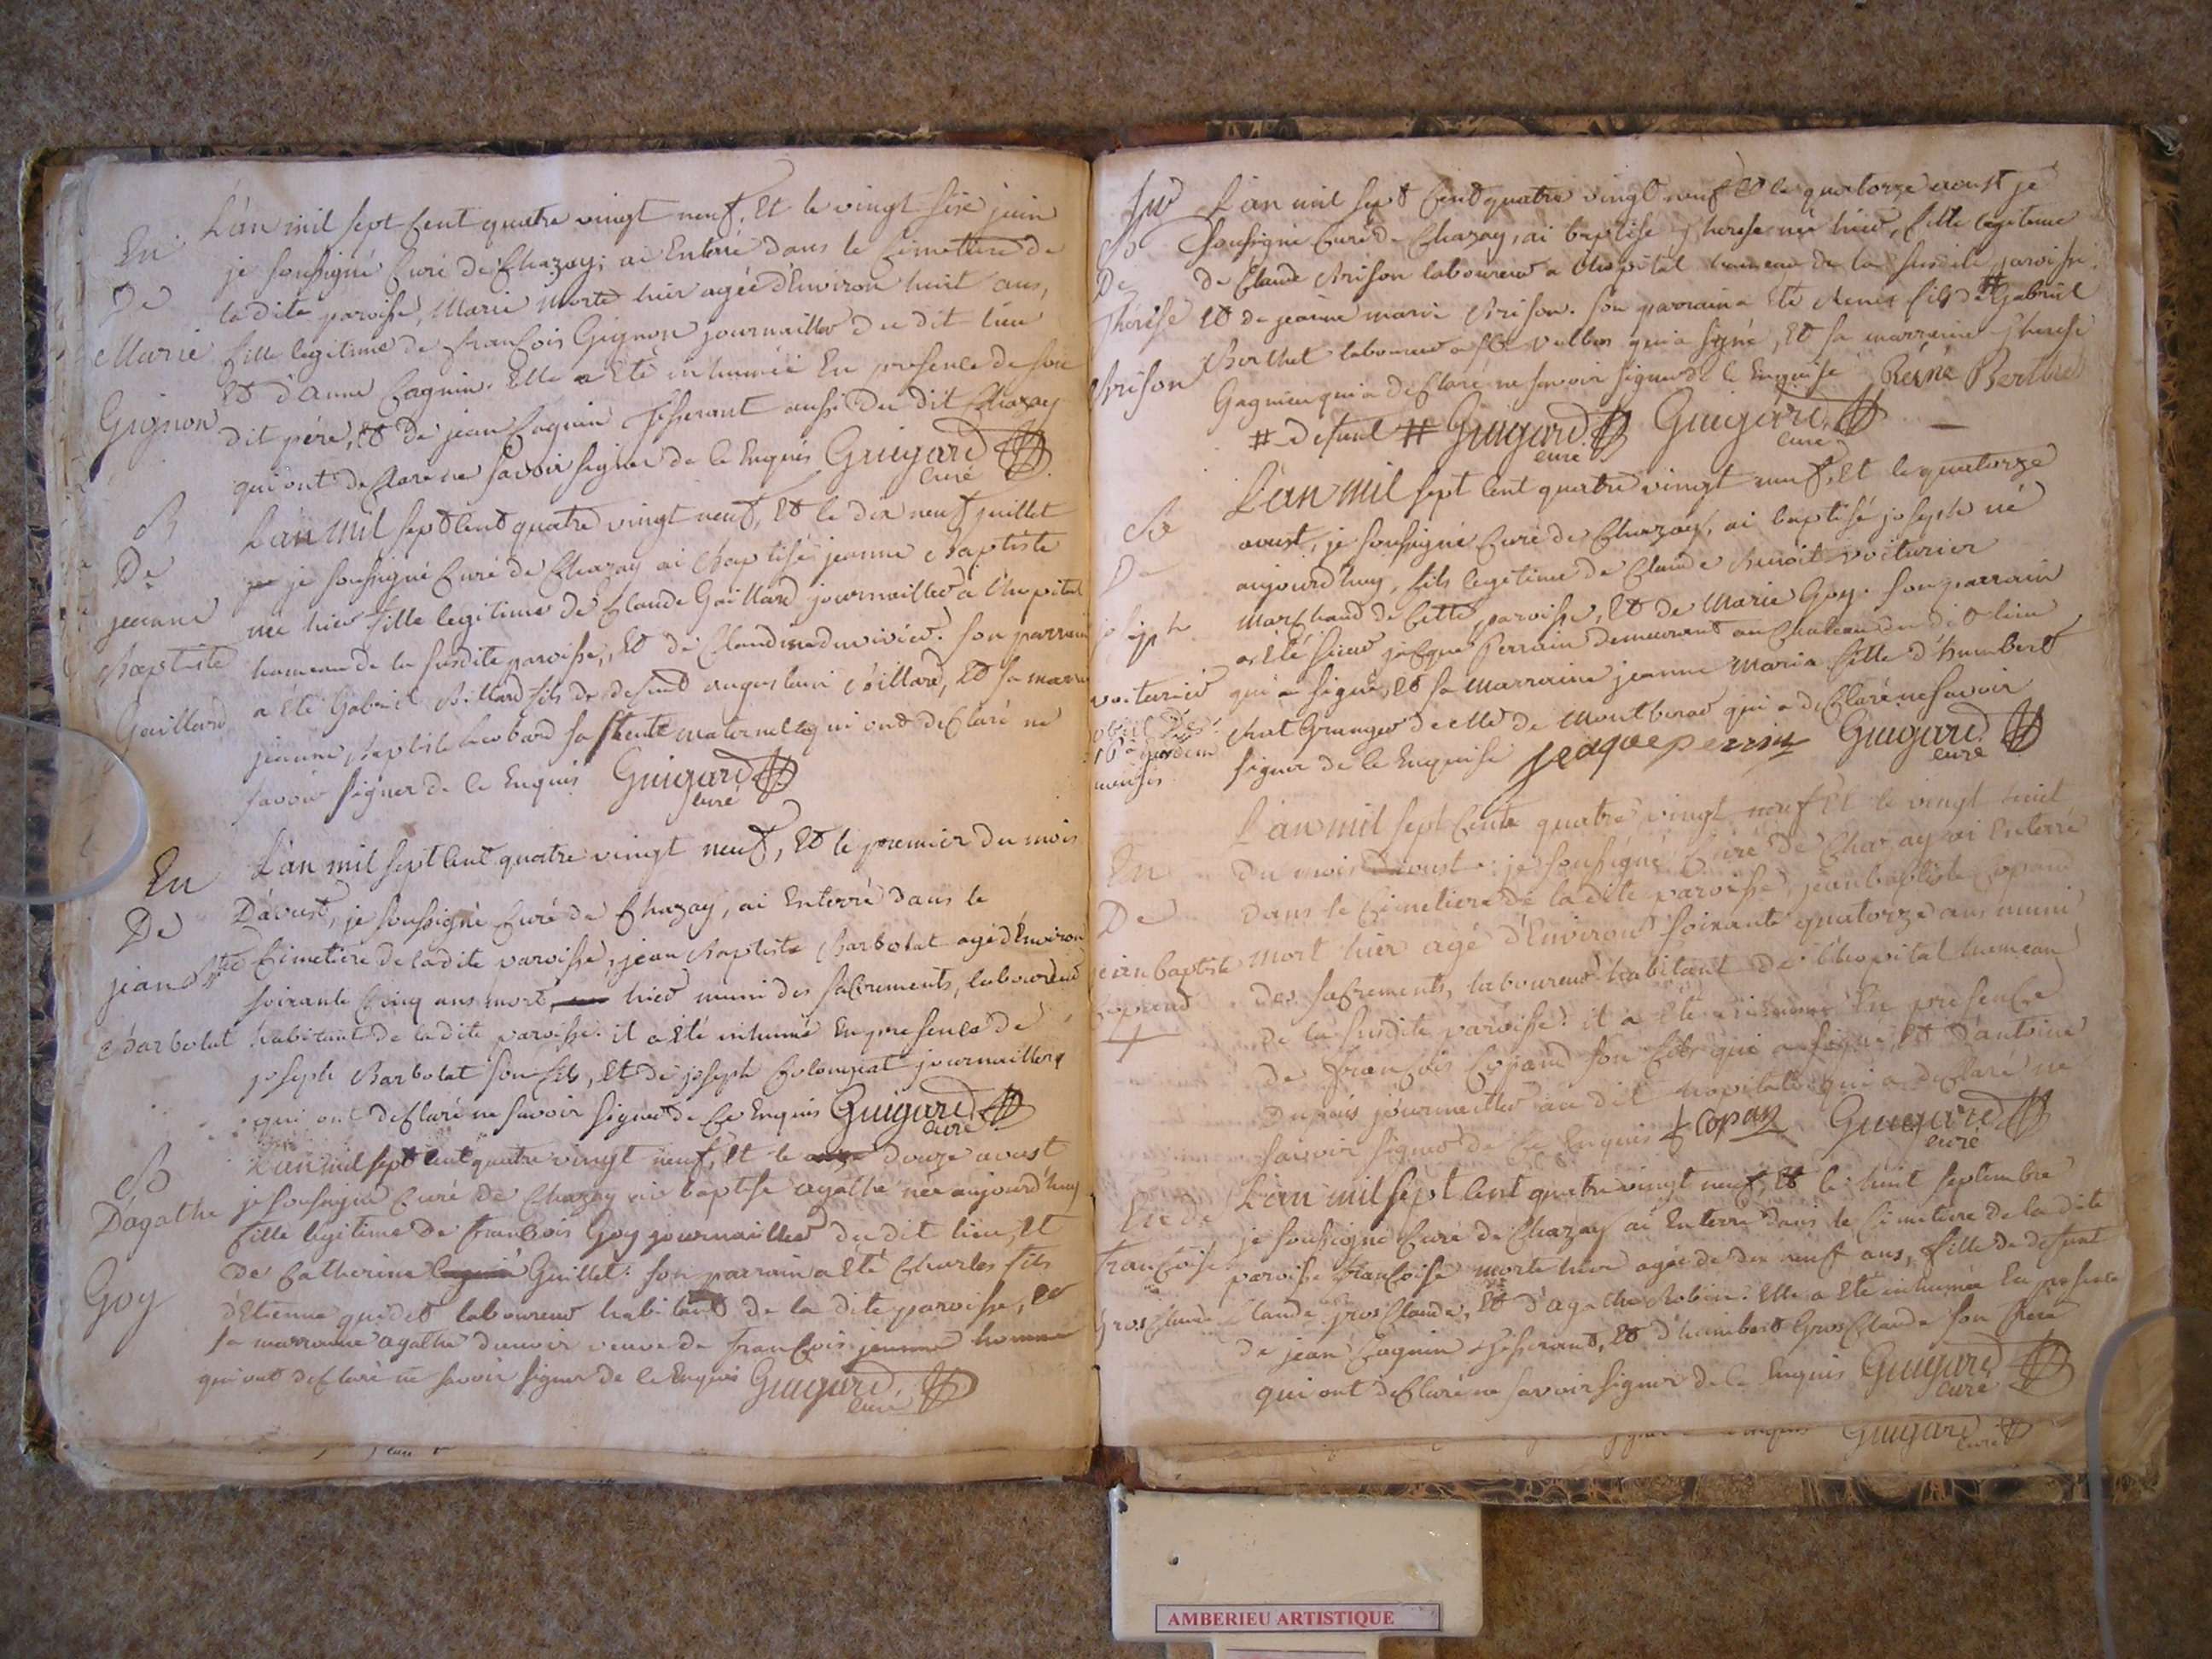 En
De
Marie
Gignon
L'an mil sept Cent quatre vingt neuf, Et le vingt sixe juin
je soussigné Curé de Chazay, ai Enterré dans le Cimetiere de
ladite paroisse, Marie morte hier agée d'Environ huit ans,
fille legitime de francois Gignon journaillier du dit lieu
Et d'anne Cagnin. Elle a Eté inhumée En presence de son
dit pére, Et de jean Cagnin Tisserant aussi du dit Chazay
qui ont declaré ne savoir signer de Ce Enquis Guigard
Curé
B
De
jeanne
Baptiste
Gaillard
L'an mil sept Cent quatre vingt neuf, Et le dix neuf juillet
je soussigné Curé de Chazay ai Baptisé jeanne Baptiste
née hier fille legitime de Claude Gaillard journaillier à l'hopital
hameau de la susdite paroisse, Et de Claudine duvivier. Son parrain
a été Gabriel Billard fils de defunt Billard, Et sa marr
jeanne Baptiste sa tente maternelle qui ont declaré ne
savoir signer de Ce Enquis Guigard
Curé
En
De
jean Bte
Barbolat
L'an mil sept Cent quatre vingt neuf, Et le premier du mois
D'avust, je soussigné Curé de Chazay, ai Enterré dans le
Cimetiere de ladite paroisse, jean Baptiste Barbolat agé d'Environ
soixante Cinq ans mort hier muni des sacrements, laboureur
habitant de la dite paroisse. il a Eté inhumé En presence de
joseph Barbolat son fils, Et de joseph Colompat journaillier
qui ont declaré ne savoir signer de Ce Enquis Guigard
Curé
B
D'agathe
Goy
L'an mil sept Cent quatre vingt neuf, Et le douze avust
je soussigné Curé de Chazay ai baptisé agathe née aujourd'huy
fille legitime de francois Goy journaillier du dit lieu, Et
de Catherine Guillet. son parrain a Eté Charles fils
d'Etienne laboureur habitant de la dite paroisse, Et
sa marraine agathe veuve de francois jeanne homme
qui ont declaré ne savoir signer de Ce Enquis Guigard
Curé
B
De
Thérése
Brison
L'an mil sept Cent quatre vingt neuf Et le quatorze aoust je
soussigné Curé de Chazay, ai baptisé Therese née hier, fille legitime
de Claude Brison laboureur a l'hopital hameau de la susdite paroisse.
Et de jeanne marie Brison. son parrain a Eté Renée fils de # Gabriel
Berthet laboureur a St Vulbas qui a signé, Et sa marraine Therese
Gagnieu qui a declaré ne savoir signer de Ce Enquise Réné Berthet
# defunt # Guigard Guigard
Curé Curé
B
De
joseph
voiturier
L'an mil sept Cent quatre vingt neuf, Et le quatorze
avust, je soussigné Curé de Chazay, ai baptisé joseph né
aujourd'huy, fils legitime de Claude Benoit voiturier
marchand de Cette paroisse, Et de Marie Goy. Son parrain
a Eté sieur jacque Perrain demeurant au Chateau du dit lieu
qui a signé, Et sa Marraine jeanne Marie fille d'humbert
Granger de de Montberod qui a declaré ne savoir
signer de Ce Enquise jacque perrin Guigard
Curé
En
De
jean baptiste
Copand
L'an mil sept Cent quatre vingt neuf Et le vingt huit
du mois d'avust je soussigné Curé de Chazay ai Enterré
dans le Cimetiere de la dite paroisse, jean baptiste Copand
mort hier agé d'Environ soixante quatorze ans muni
des sacrements, laboureur habitant de l'hopital hameau
de la susdite paroisse. il a Eté inhumé En presence
de francois Copand son fils qui a signé, Et d'antoine
Dupuis journaillier au dit hopital qui a declaré ne
savoir signer de Ce Enquis f Copan Guigard
Curé
En de
francoise
Gros Claude
L'an mil sept Cent quatre vingt neuf, Et le huit septembre
je soussigné Curé de Chazay ai Enterré dans le Cimetiere de la dite
paroisse francoise morte hier agée de dix neuf ans, fille de defunt
Claude Gros Claude, Et d'agathe Robin. Elle a Eté inhumée En presence
de jean Cagnin Tisserand, Et d'humbert Gros Claude son frere
qui ont declaré ne savoir signer de Ce Enquis Guigard
Curé
Guigard
Curé
AMBERIEU ARTISTIQUE